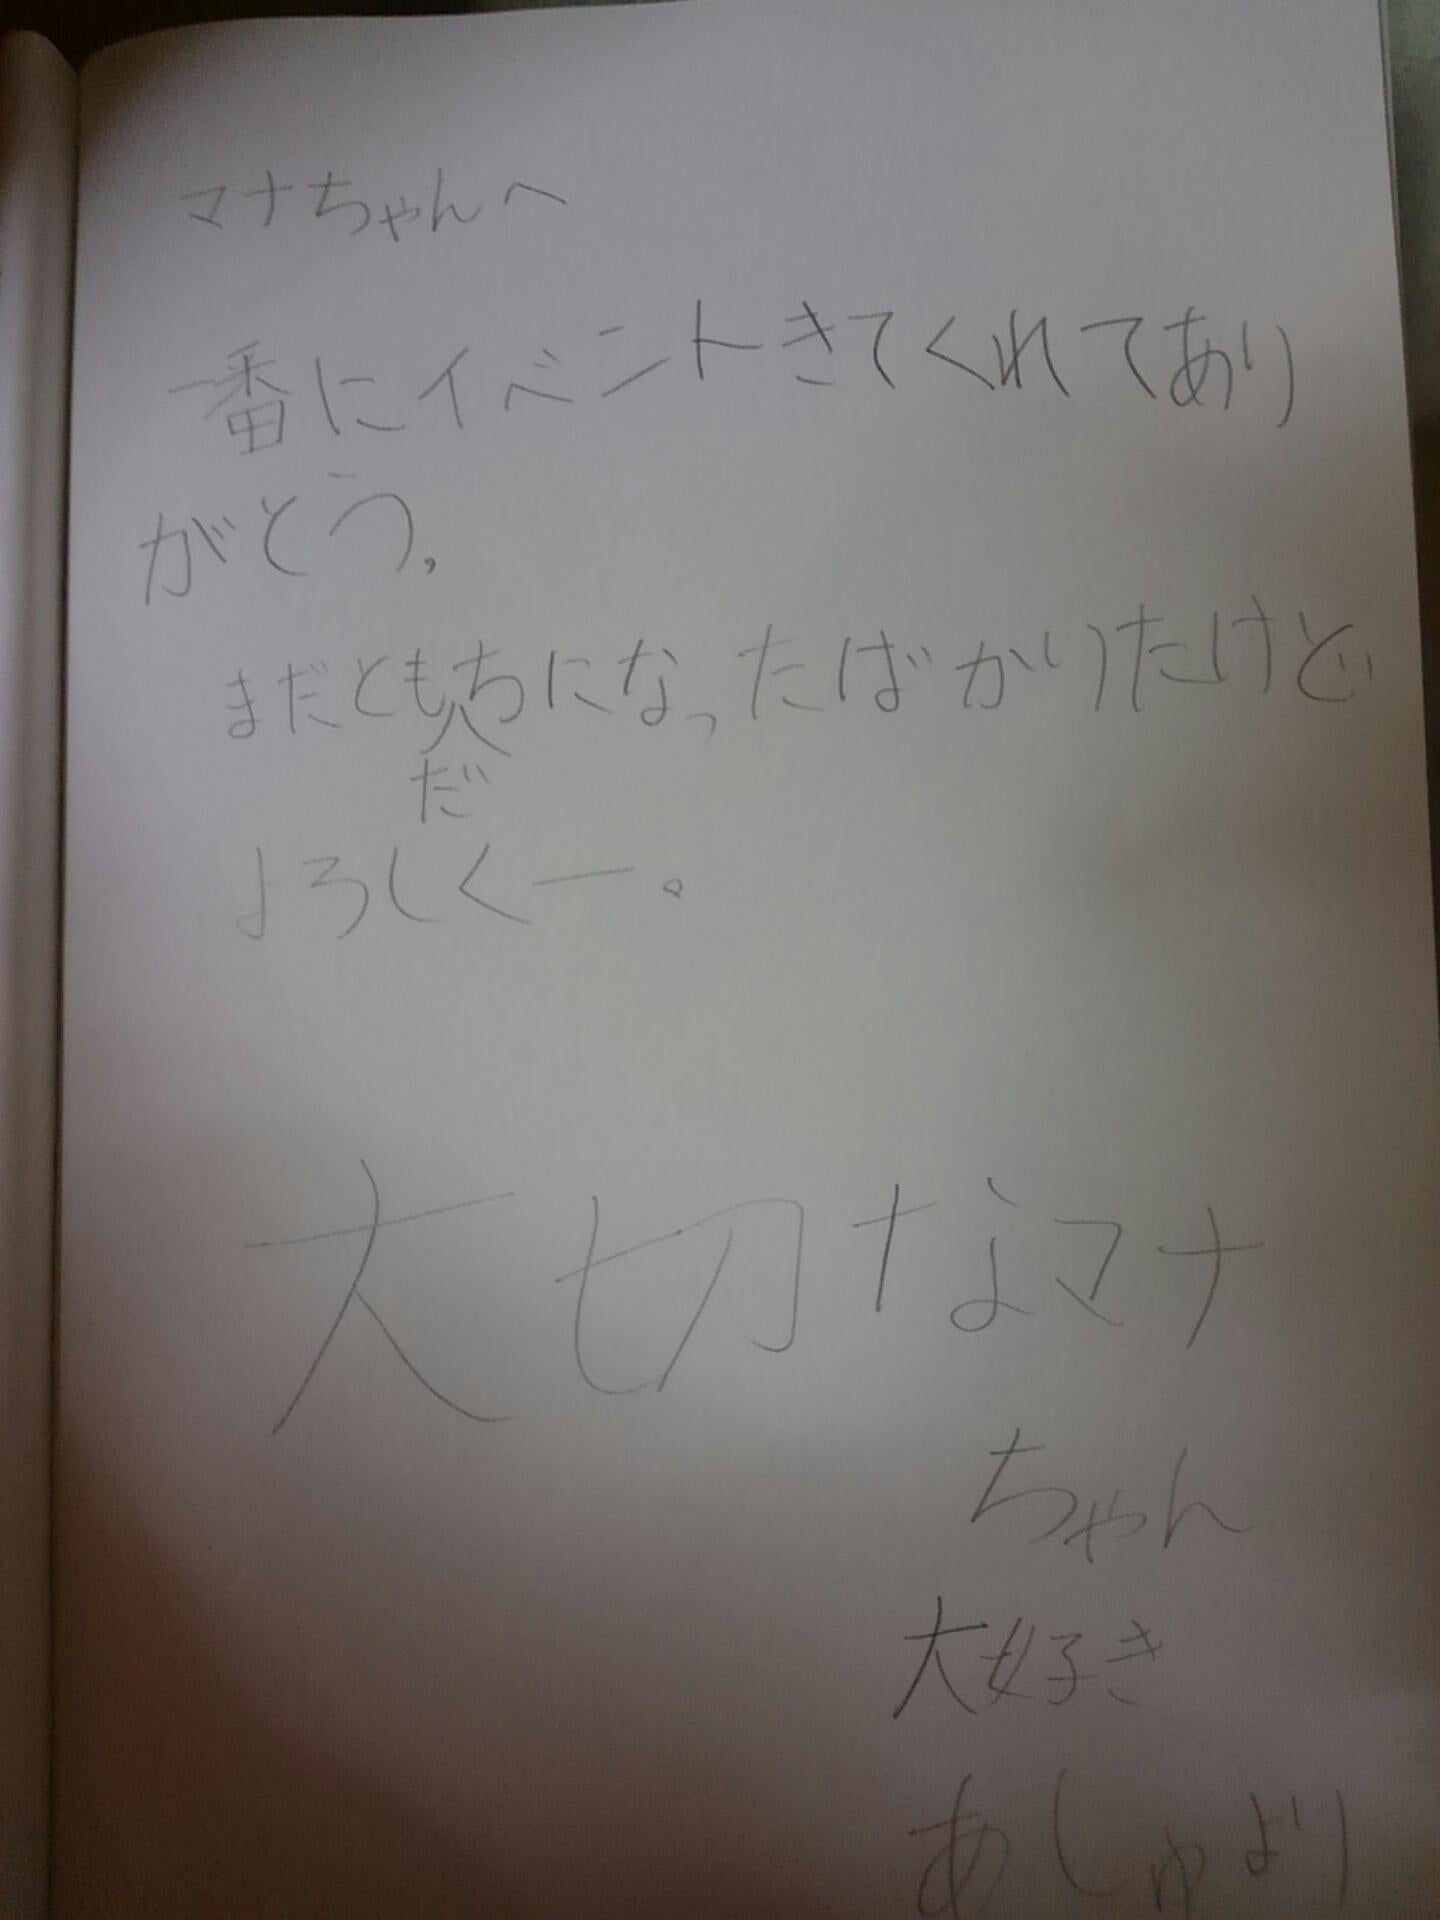 マナちゃんへ
一番にイベントきてくれてあり
がとう。
まだともだちになったばかりたけど
よろしくー。
大切なマナ
ちゃん
大好き
あしゅより